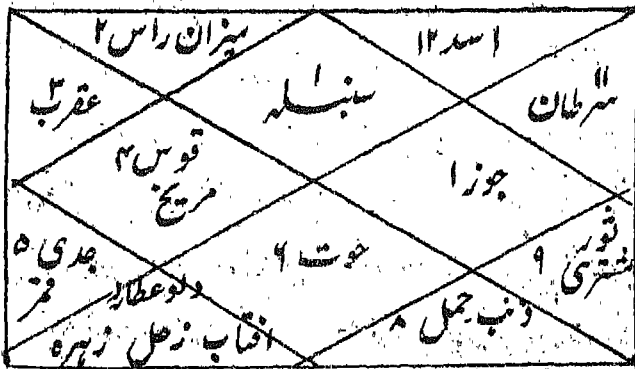 میزان راس ۲
اسد ۱۲
۱
سنبلہ
۳
عقرب
۱۱
سرطان
قوس ۴
مریخ
جوزا
جدی ۵
قمر
حوت ۶
ثور
مشتری ۹
دلو عطارد
افتاب زحل زہرہ
ذنب حمل ۸